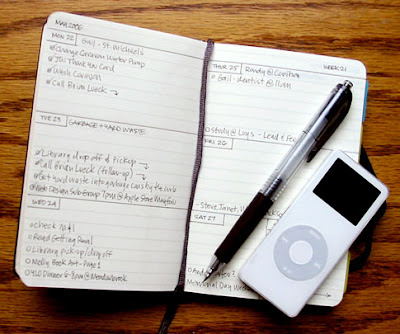 MAY 2006
MON 22 Gail - St. Michaels
Change Caravan Water Pump
Thank You Card
Wash Caravan
Call Brian Lueck
TUE 23 GARBAGE + YARD WASTE
Library drop off & pickup
Call Brian Lueck (follow-up)
Get hard waste into garbage cans by the curb
Web Design Sub Group 7pm @ Apple Store Mayfair
WED 24
check M+1
Read Getting Real
Library pickup/drop off
Molly Book Art - Page 1
Y60 Dinner 6-8pm @
THUR 25 Randy @ WEEK 21
Gail - dentist @ 11am
Study @ Lay's - Lead & Fe
FRI 26
Steve, Janet,
SAT 27
Memorial Day Week